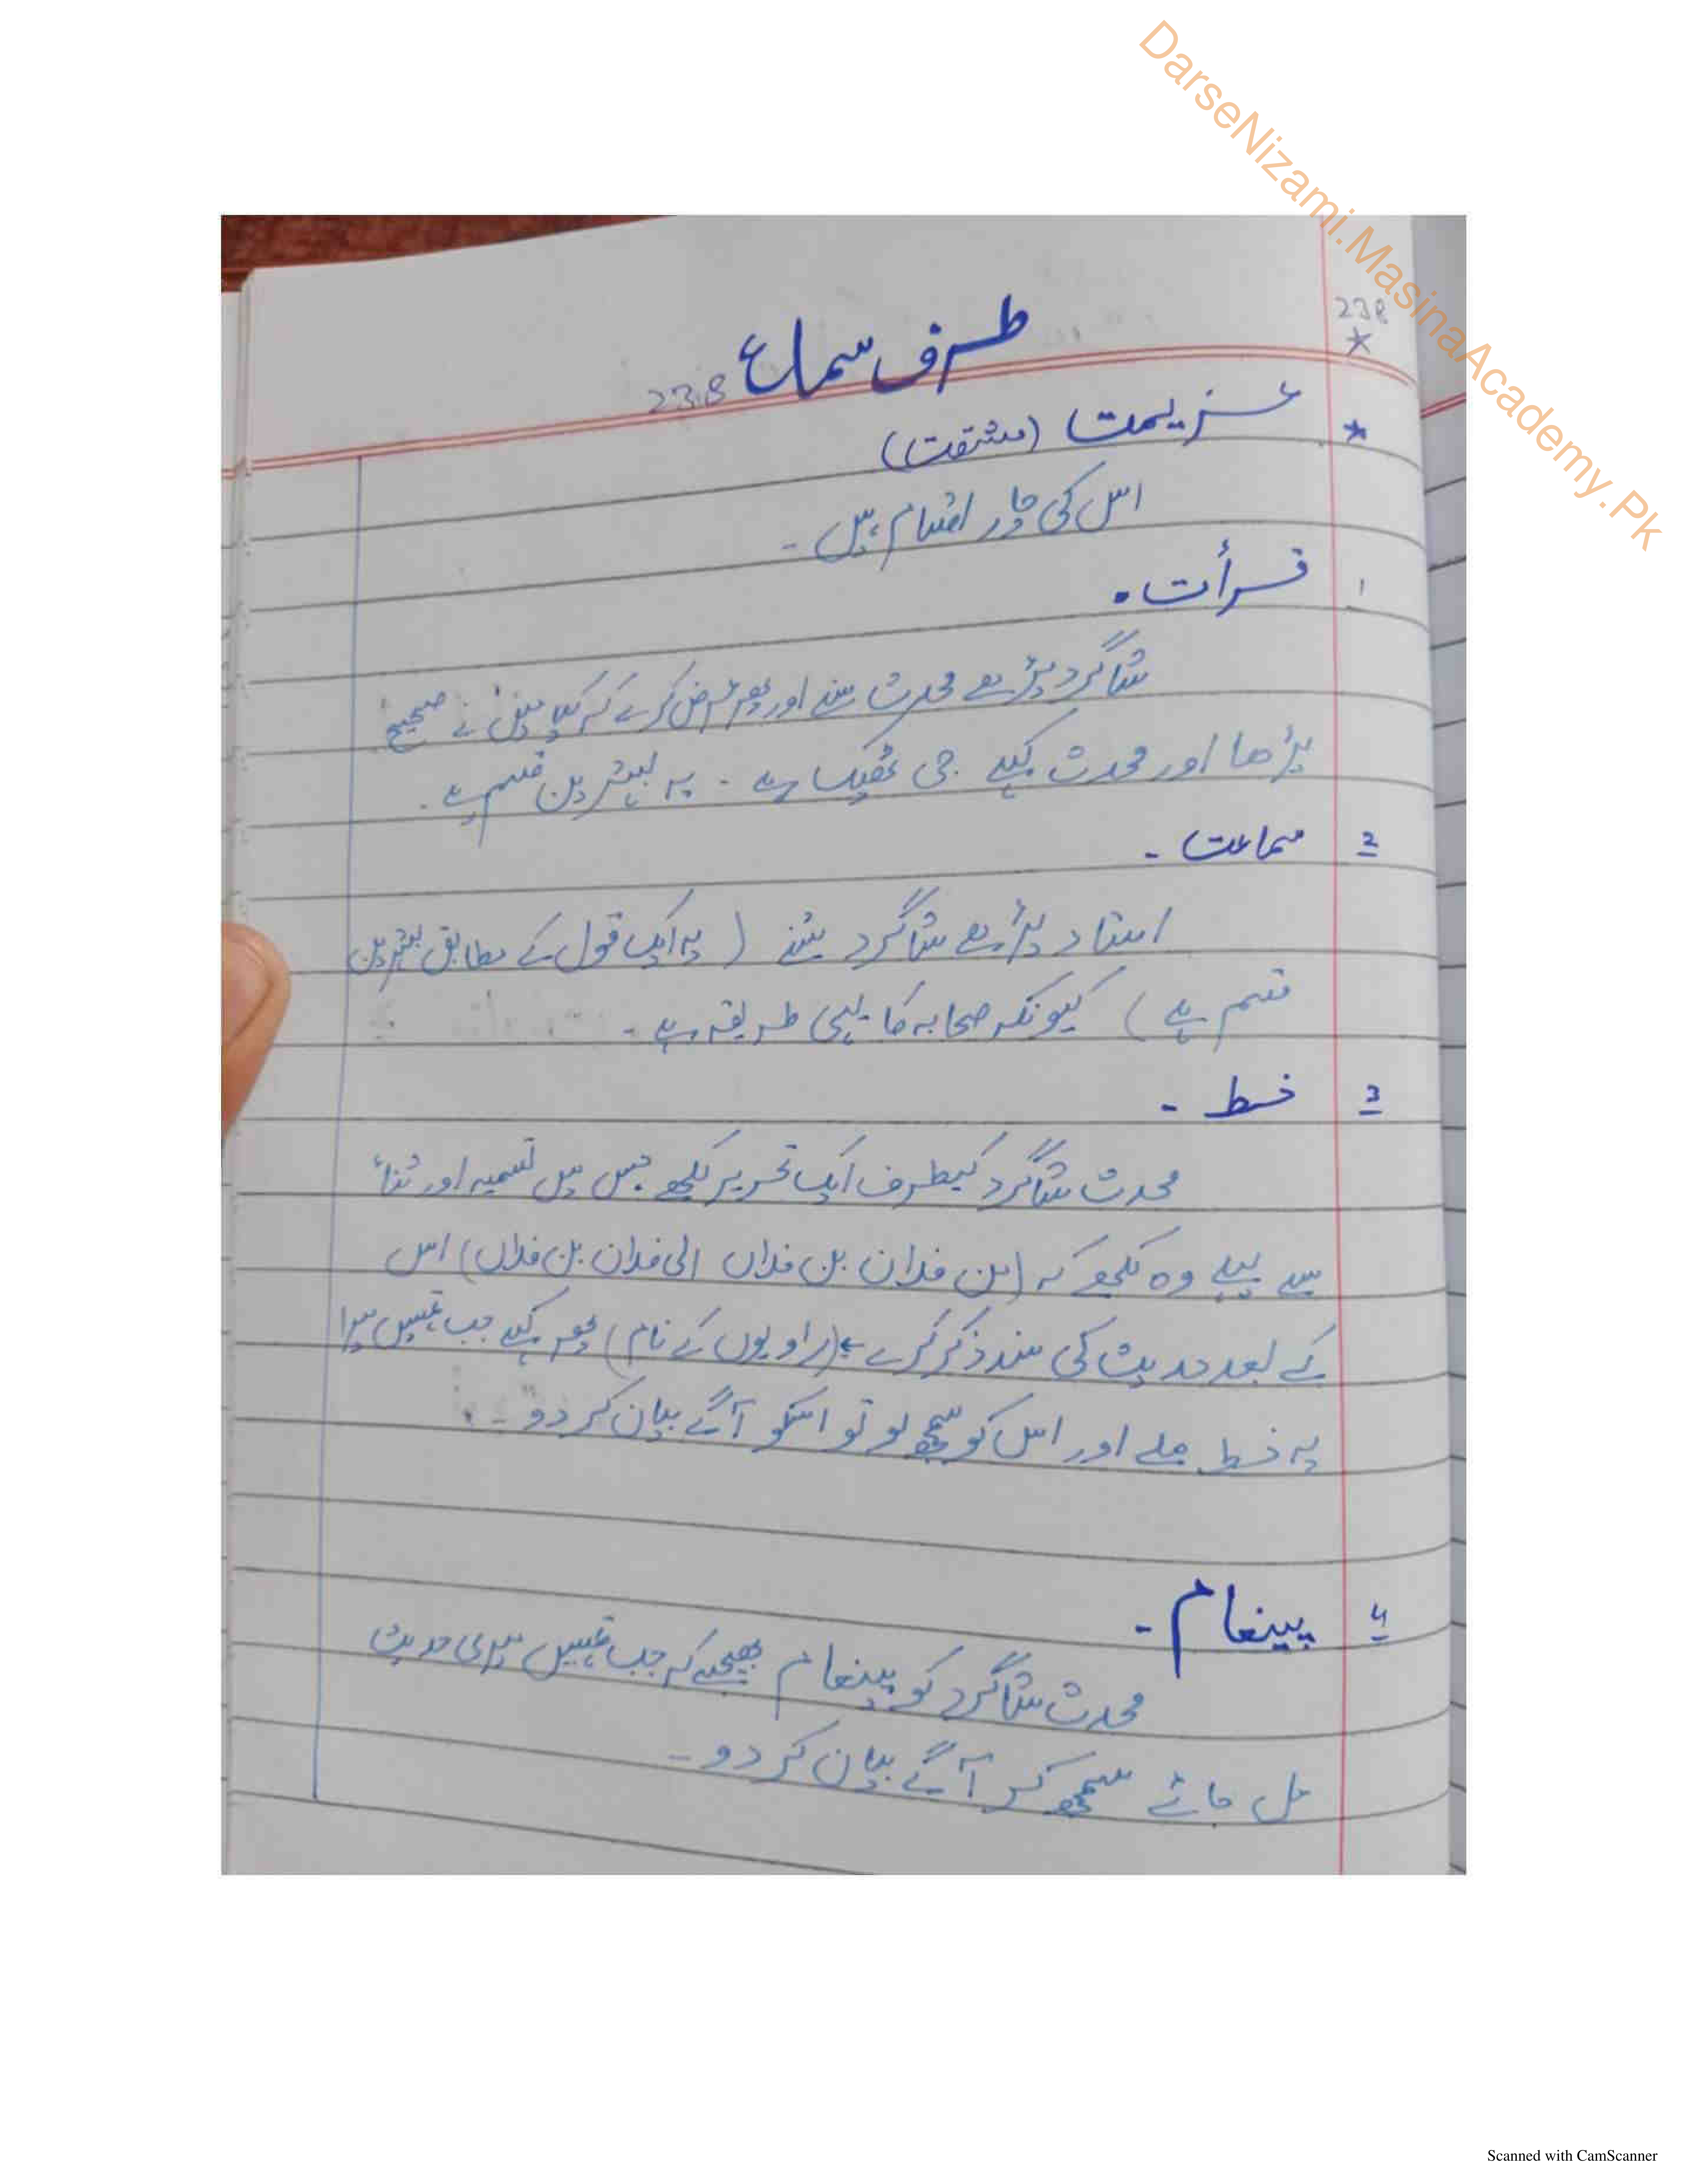 DarseNizami.MasinaAcademy.Pk
238
طرف سماع 238
* عزیمت (مشقت)
اس کی چار اقسام ہیں ۔
1 قرأت ۔
شاگرد پڑھے محدث سنے اور پھر عرض کرے کہ کیا میں نے صحیح
پڑھا اور محدث کہے جی ٹھیک ہے ۔ یہ بہترین قسم ہے ۔
2 سماعت ۔
استاد پڑھے شاگرد سُنے ( یہ ایک قول کے مطابق بہترین
قسم ہے ) کیونکہ صحابہ کا یہی طریقہ ہے ۔
3 خط ۔
محدث شاگرد کیطرف ایک تحریر لکھے جس میں تسمیہ اور ثناء
سے پہلے وہ لکھے کہ (من فلان بن فلاں الی فلان بن فلاں) اس
کے بعد حدیث کی سند ذکر کرے (راویوں کے نام) پھر کہے جب تمہیں میرا
یہ خط ملے اور اس کو سمجھ لو تو اسکو آگے بیان کر دو ۔
4 پیغام ۔
محدث شاگرد کو پیغام بھیجے کہ جب تمہیں میری حدیث
مل جائے سمجھ کر آگے بیان کر دو ۔
Scanned with CamScanner